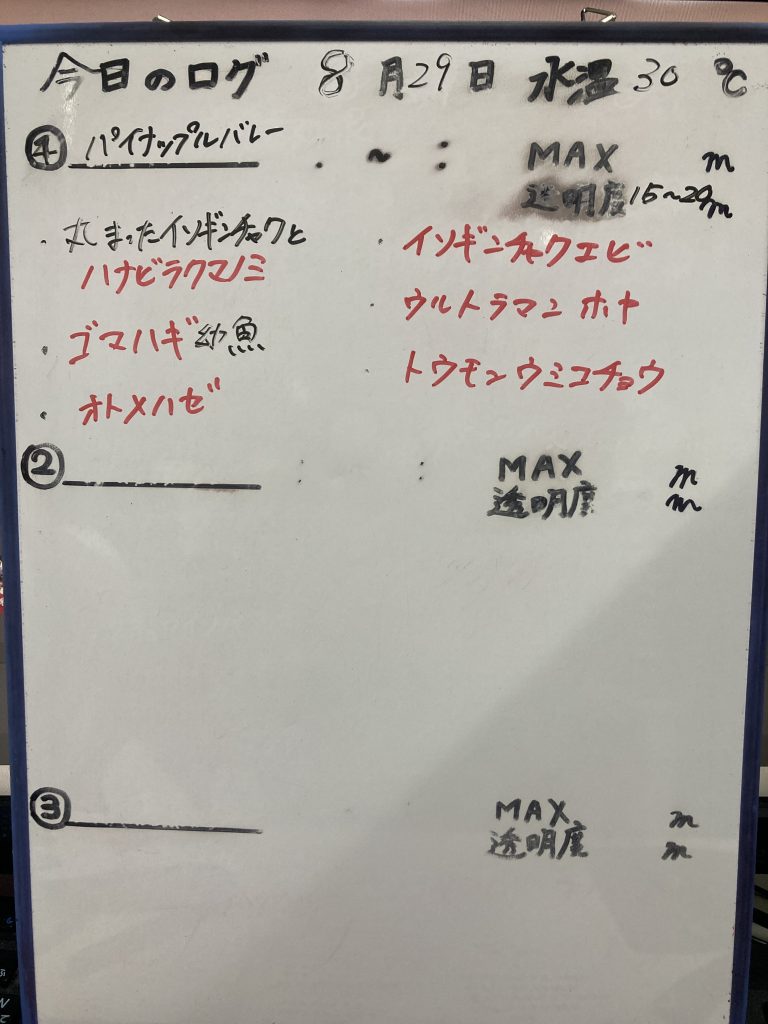 今日のログ 8月29日 水温 30 ℃
① パイナップルバレー : ~ : MAX m
透明度 15~20m
・丸まったイソギンチャクと
ハナビラクマノミ
・ゴマハギ幼魚
・オトメハゼ
・イソギンチャクエビ
・ウルトラマンホヤ
・トウモンウミコチョウ
② : : MAX m
透明度 m
③ MAX m
透明度 m